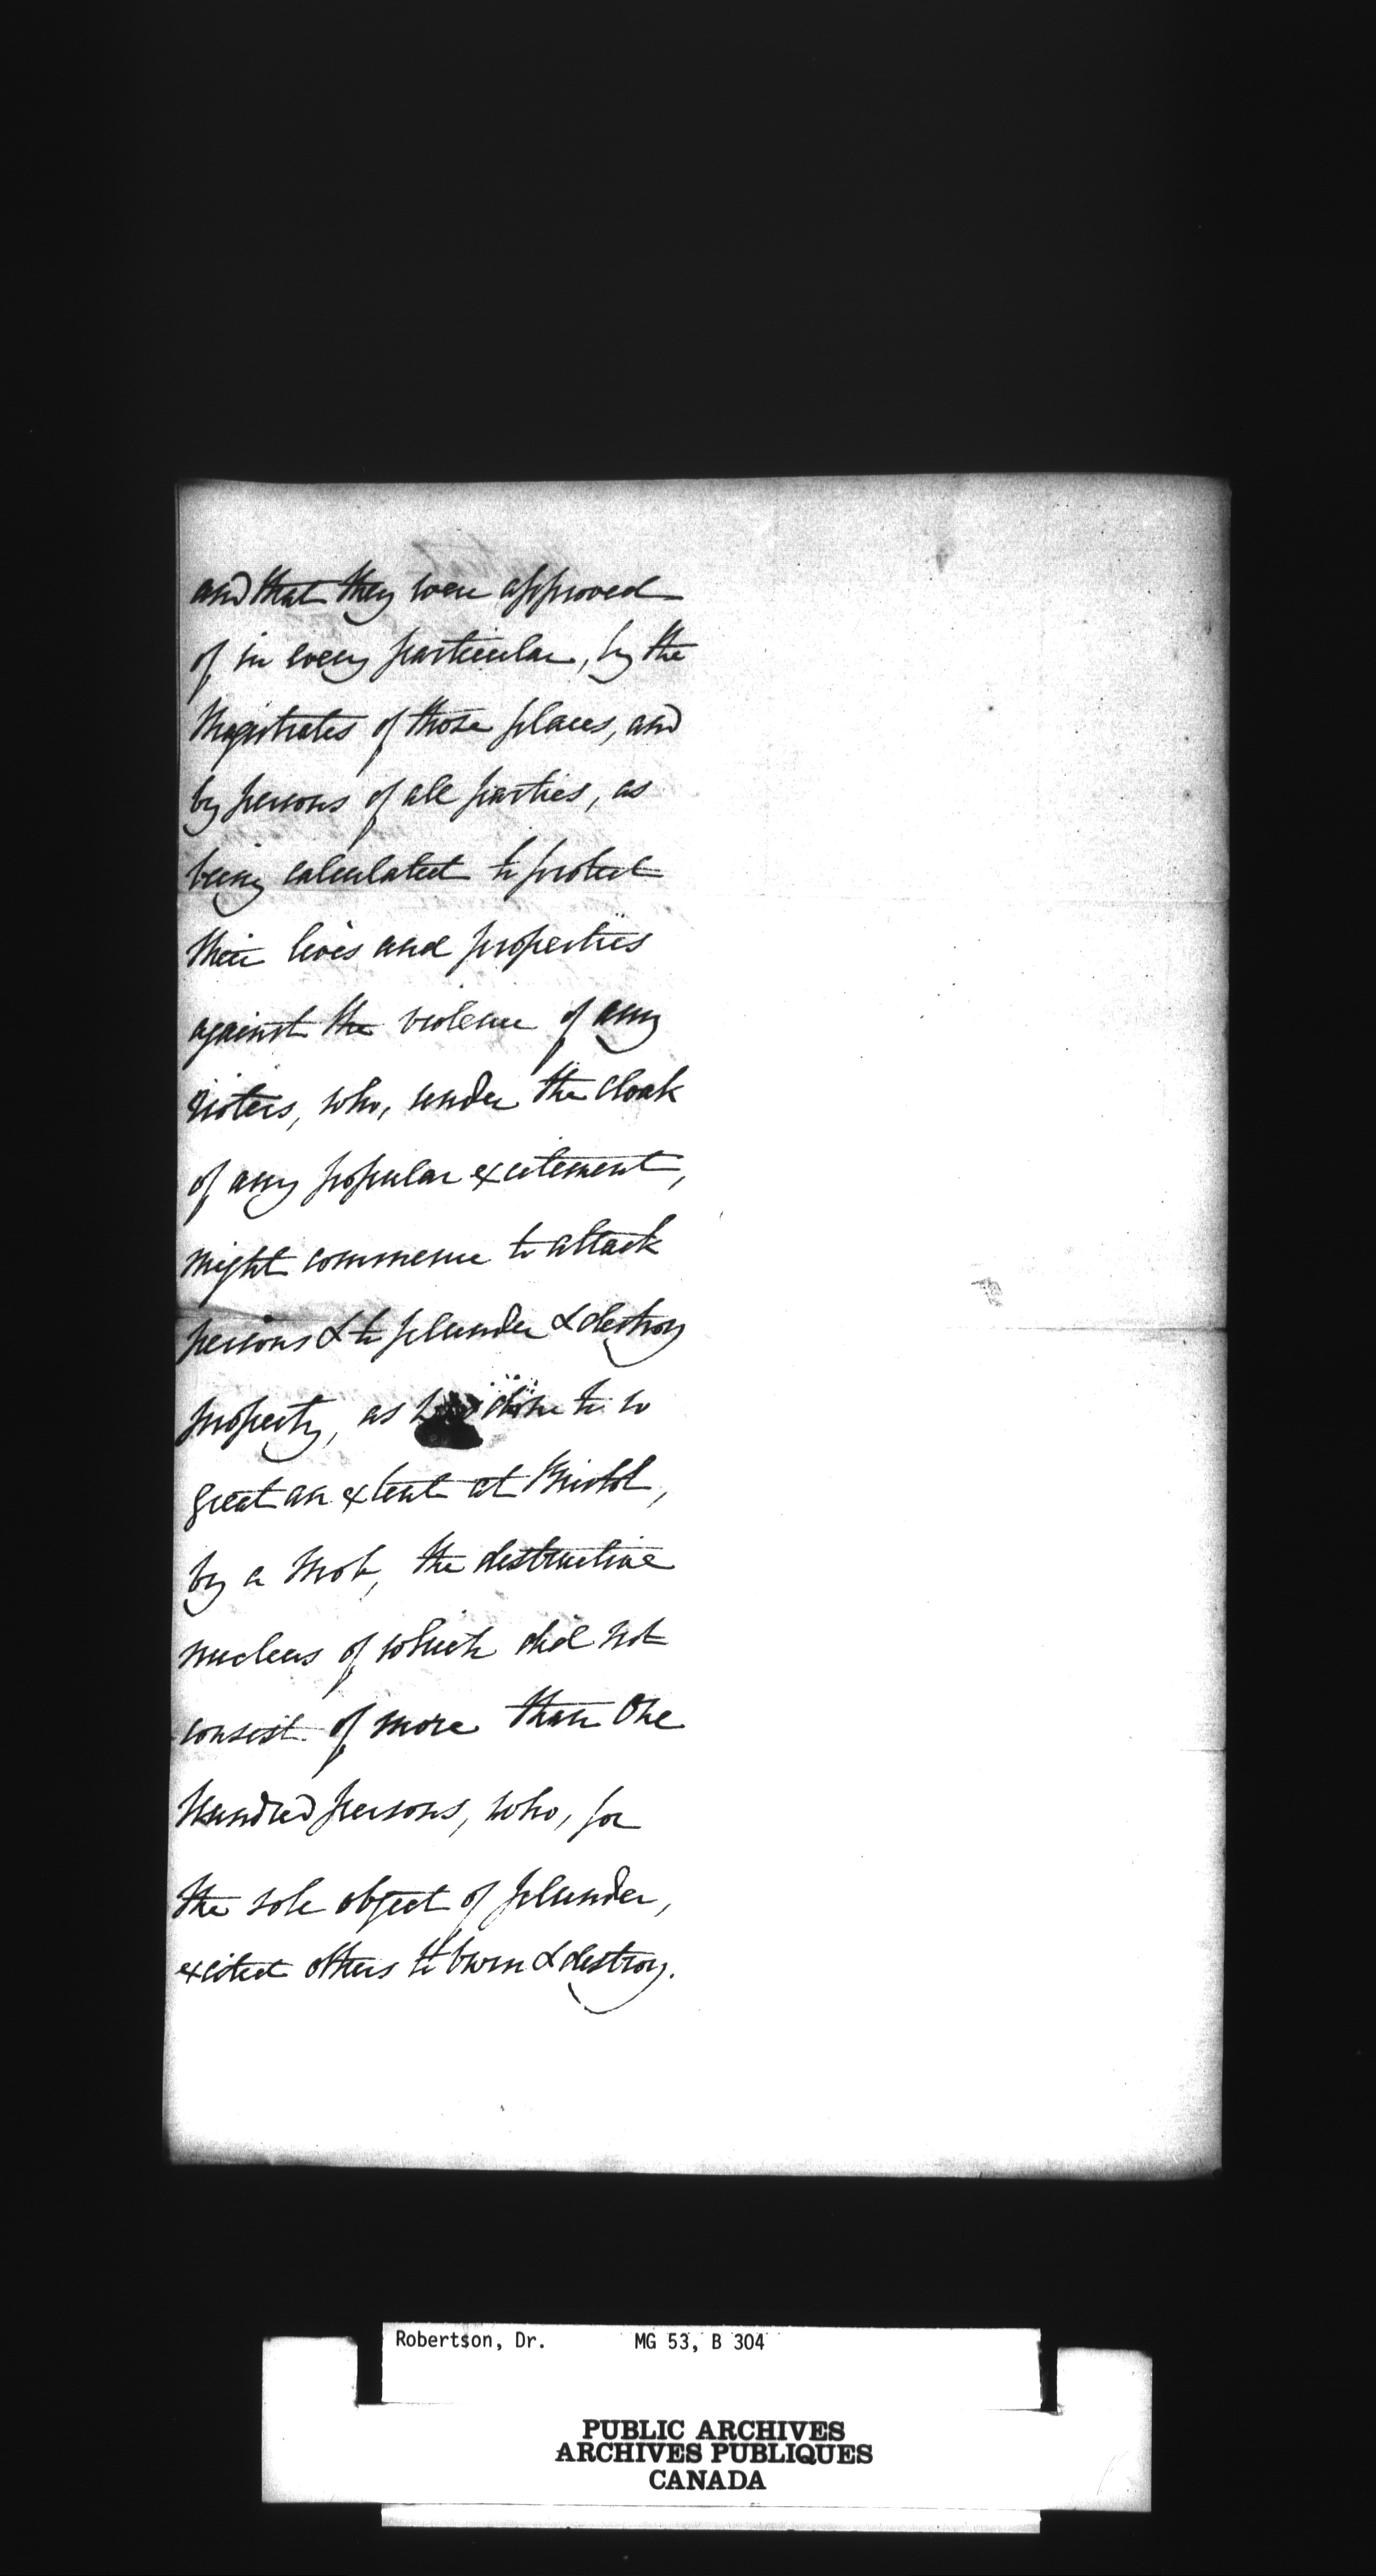 and that they were approved
of in every particular, by the
Magistrates of those places, and
by persons of all parties, as
being calculated to protect
their lives and properties
against the violence of any
rioters, who, under the cloak
of any popular excitement,
might commence to attack
persons & to plunder & destroy
property, as done to so
great an extent at Bristol,
by a Mob, the destructive
nucleus of which did not
consist of more than One
hundred persons, who, for
the sole object of plunder,
excited others to burn & destroy.
Robertson, Dr. MG 53, B 304
PUBLIC ARCHIVES
ARCHIVES PUBLIQUES
CANADA